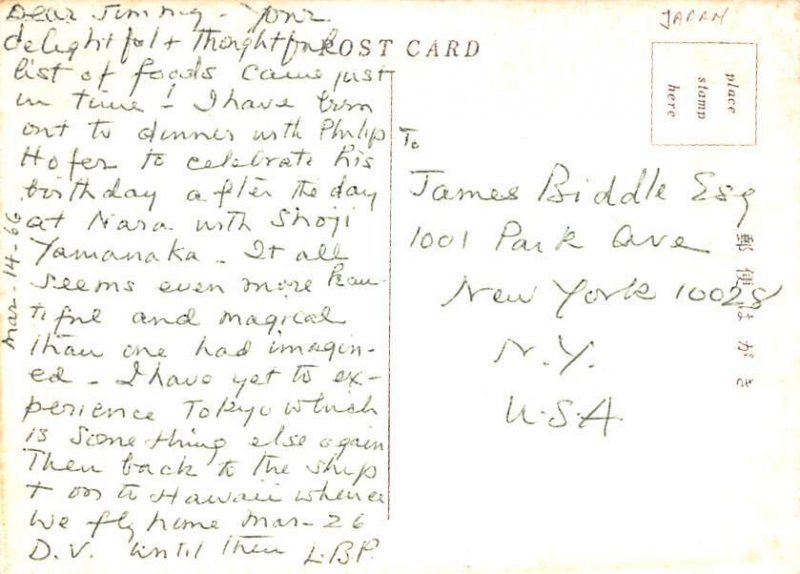 Dear Jimmy - Your
delightful + thoughtful
list of foods came just
in time! I have been
out to dinner with Philip
Hofer to celebrate his
birthday after the day
at Nara with Shoji
Yamanaka. It all
seems even more beau-
tiful and magical
than one had imagin-
ed - I have yet to ex-
perience Tokyo which
is something else again
Then back to the ship
+ on to Hawaii whence
we fly home Mar-26
D.V. until then L.B.P.
Mar-14-66
POST CARD
JAPAN
place
stamp
here
To
James Biddle Esq
1001 Park Ave
New York 10028
N.Y.
U.S.A.
郵便はがき